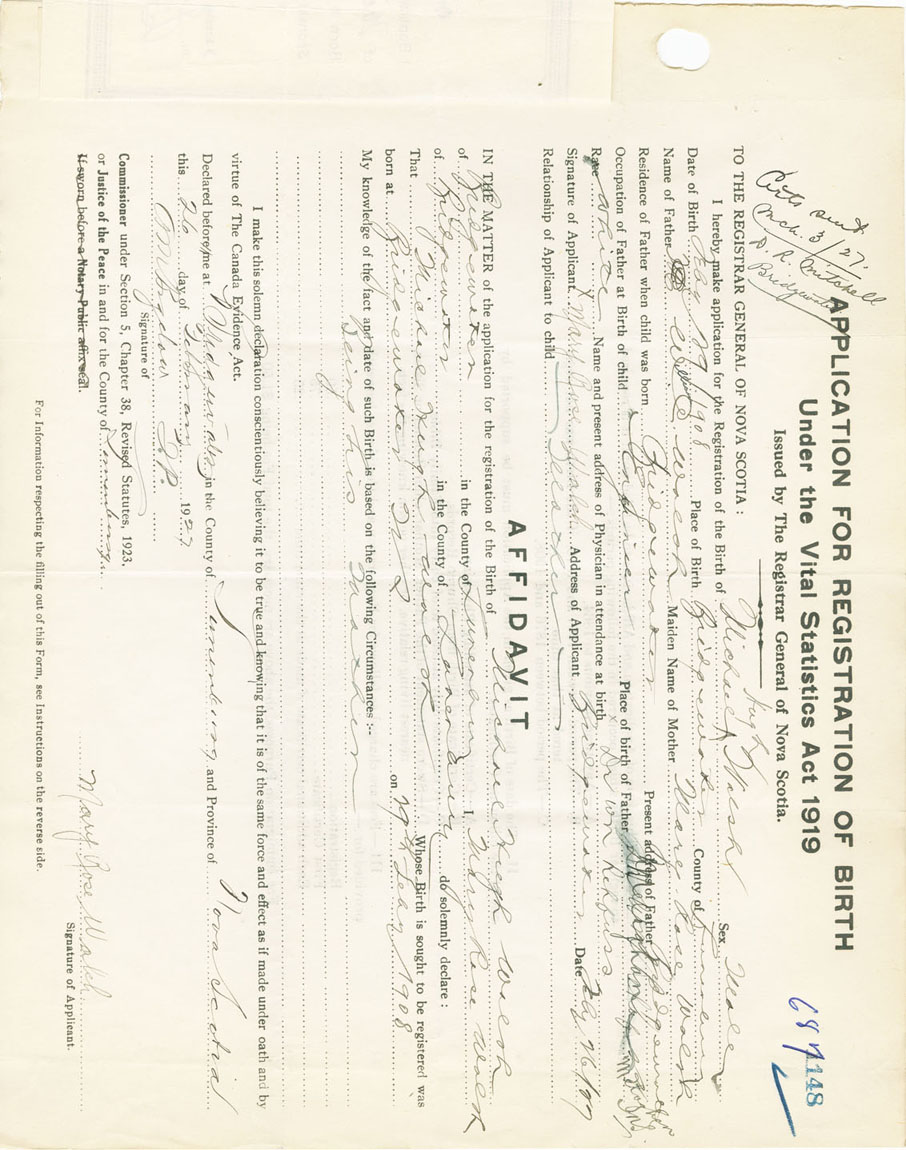 Certs sent
Mch. 3/27.
D. R. Mitchell
Bridgewater
687148
APPLICATION FOR REGISTRATION OF BIRTH
Under the Vital Statistics Act 1919
Issued by The Registrar General of Nova Scotia.
TO THE REGISTRAR GENERAL OF NOVA SCOTIA:
Hugh
I hereby make application for the Registration of the Birth of Michael Walsh Sex Male
Date of Birth 29/1908 Place of Birth Bridgewater County of Lunenburg
Name of Father Walsh Maiden Name of Mother Mary Rose Walsh
Residence of Father when child was born Bridgewater Present address of Father Bridgewater
Occupation of Father at Birth of child Place of birth of Father
Race White Name and present address of Physician in attendance at birth Dr
Signature of Applicant Mary Rose Walsh Address of Applicant Bridgewater Date Feby 26/27
Relationship of Applicant to child
AFFIDAVIT
IN THE MATTER of the application for the registration of the Birth of Michael Hugh Walsh
of Bridgewater in the County of Lunenburg I, Mary Rose Walsh
of Bridgewater in the County of Lunenburg do solemnly declare:
That Michael Hugh Walsh Whose Birth is sought to be registered was
born at Bridgewater N S on 1908
My knowledge of the fact and date of such Birth is based on the following Circumstances:-
Being his Mother
I make this solemn declaration conscientiously believing it to be true and knowing that it is of the same force and effect as if made under oath and by
virtue of The Canada Evidence Act.
Declared before me at Bridgewater in the County of Lunenburg and Province of Nova Scotia
this 26 day of February 1927
J.P.
Signature of
Commissioner under Section 5, Chapter 38, Revised Statutes, 1923.
or Justice of the Peace in and for the County of Lunenburg
If sworn before a Notary Public affix seal.
Mary Rose Walsh
Signature of Applicant.
For Information respecting the filling out of this Form, see Instructions on the reverse side.